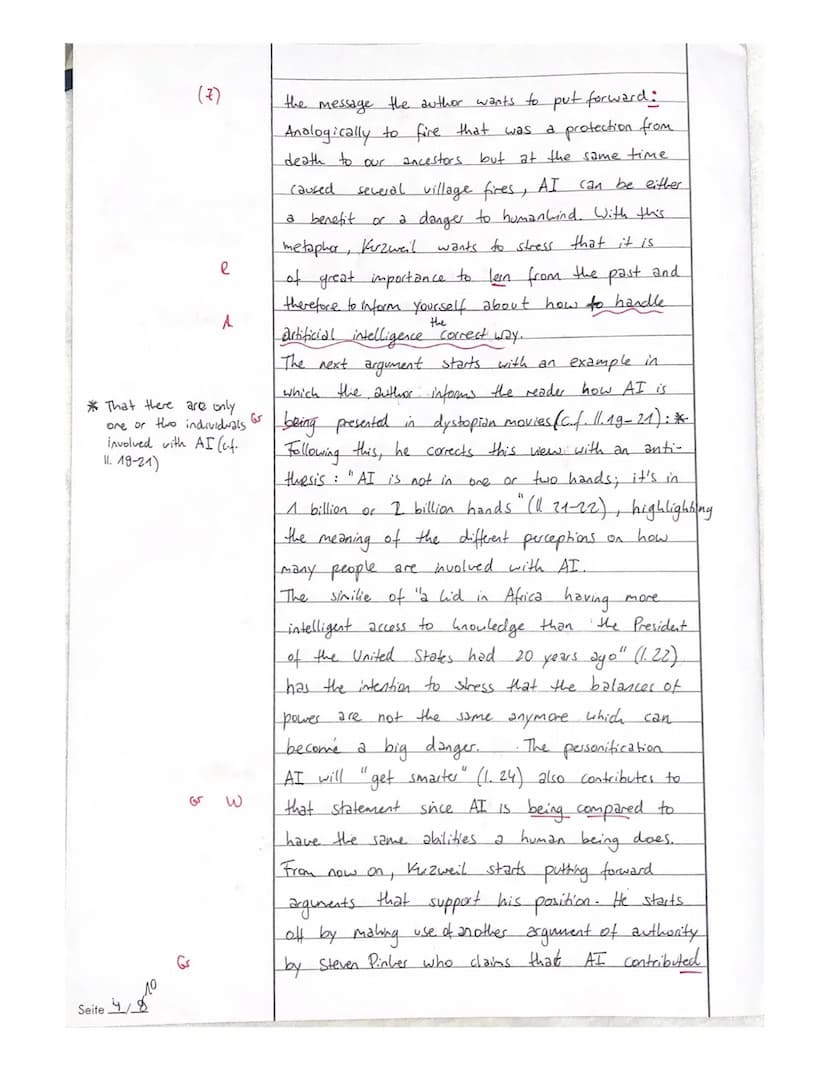 (7)
the message the author wants to put forward:
Analogically to fire that was a protection from
death to our ancestors but at the same time
caused several village fires, AI can be either
a benefit or a danger to humankind. With this
metapher, Kurzweil wants to stress that it is
R
of great importance to lern from the past and
therefore to inform yourself about how to handle
A
the
artificial intelligence correct way.
The next argument starts with an example in
which the author informs the reader how AI is
being presented in dystopian movies (c.f. ll. 19-21): *
Gr
* That there are only
one or two individuals
involved with AI (c.f.
ll. 19-21)
Following this, he corrects this view with an anti-
thesis: "AI is not in one or two hands; it's in
1 billion or 2 billion hands" (ll 21-22), highlighting
the meaning of the different perceptions on how
many people are involved with AI.
The similie of "a kid in Africa having more
intelligent access to knowledge than the President
of the United States had 20 years ago" (l. 22)
has the intention to stress that the balances of
power are not the same anymore which can
become a big danger. The personification
AI will "get smarter" (l. 24) also contributes to
Gr W
that statement since AI is being compared to
have the same abilities a human being does.
From now on, Kurzweil starts putting forward
arguments that support his position. He starts
off by making use of another argument of authority
Gr
by Steven Pinker who claims that AI contributed
10
Seite 4 / 8